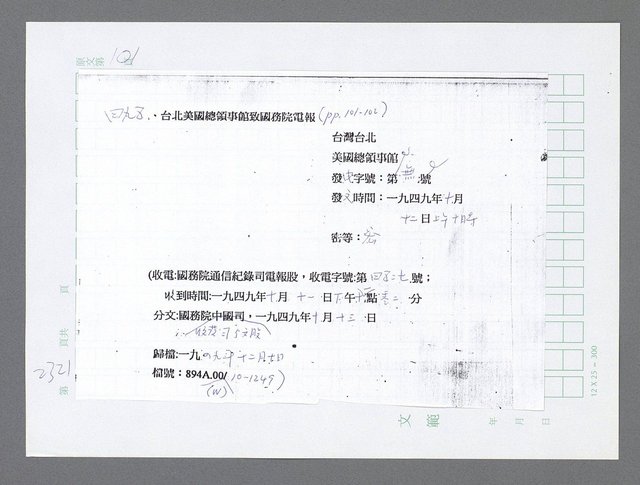 原文第101頁
四九了、台北美國總領事館致國務院電報(pp. 101-102)
台灣台北
美國總領事館
發電字號：第 無 號
發文時間：一九四九年十月
十二日上午十時
密等：密
(收電:國務院通信紀錄司電報股，收電字號:第四了二七號；
收到時間:一九四九年十月十一日下午 點 分
分文:國務院中國司，一九四九年十月十三日
歸檔:一九四九年十二月七日
檔號：894A.00/10-1249)
(W)
第2321頁共 頁
文範
年 月 日
12 X 25 = 300